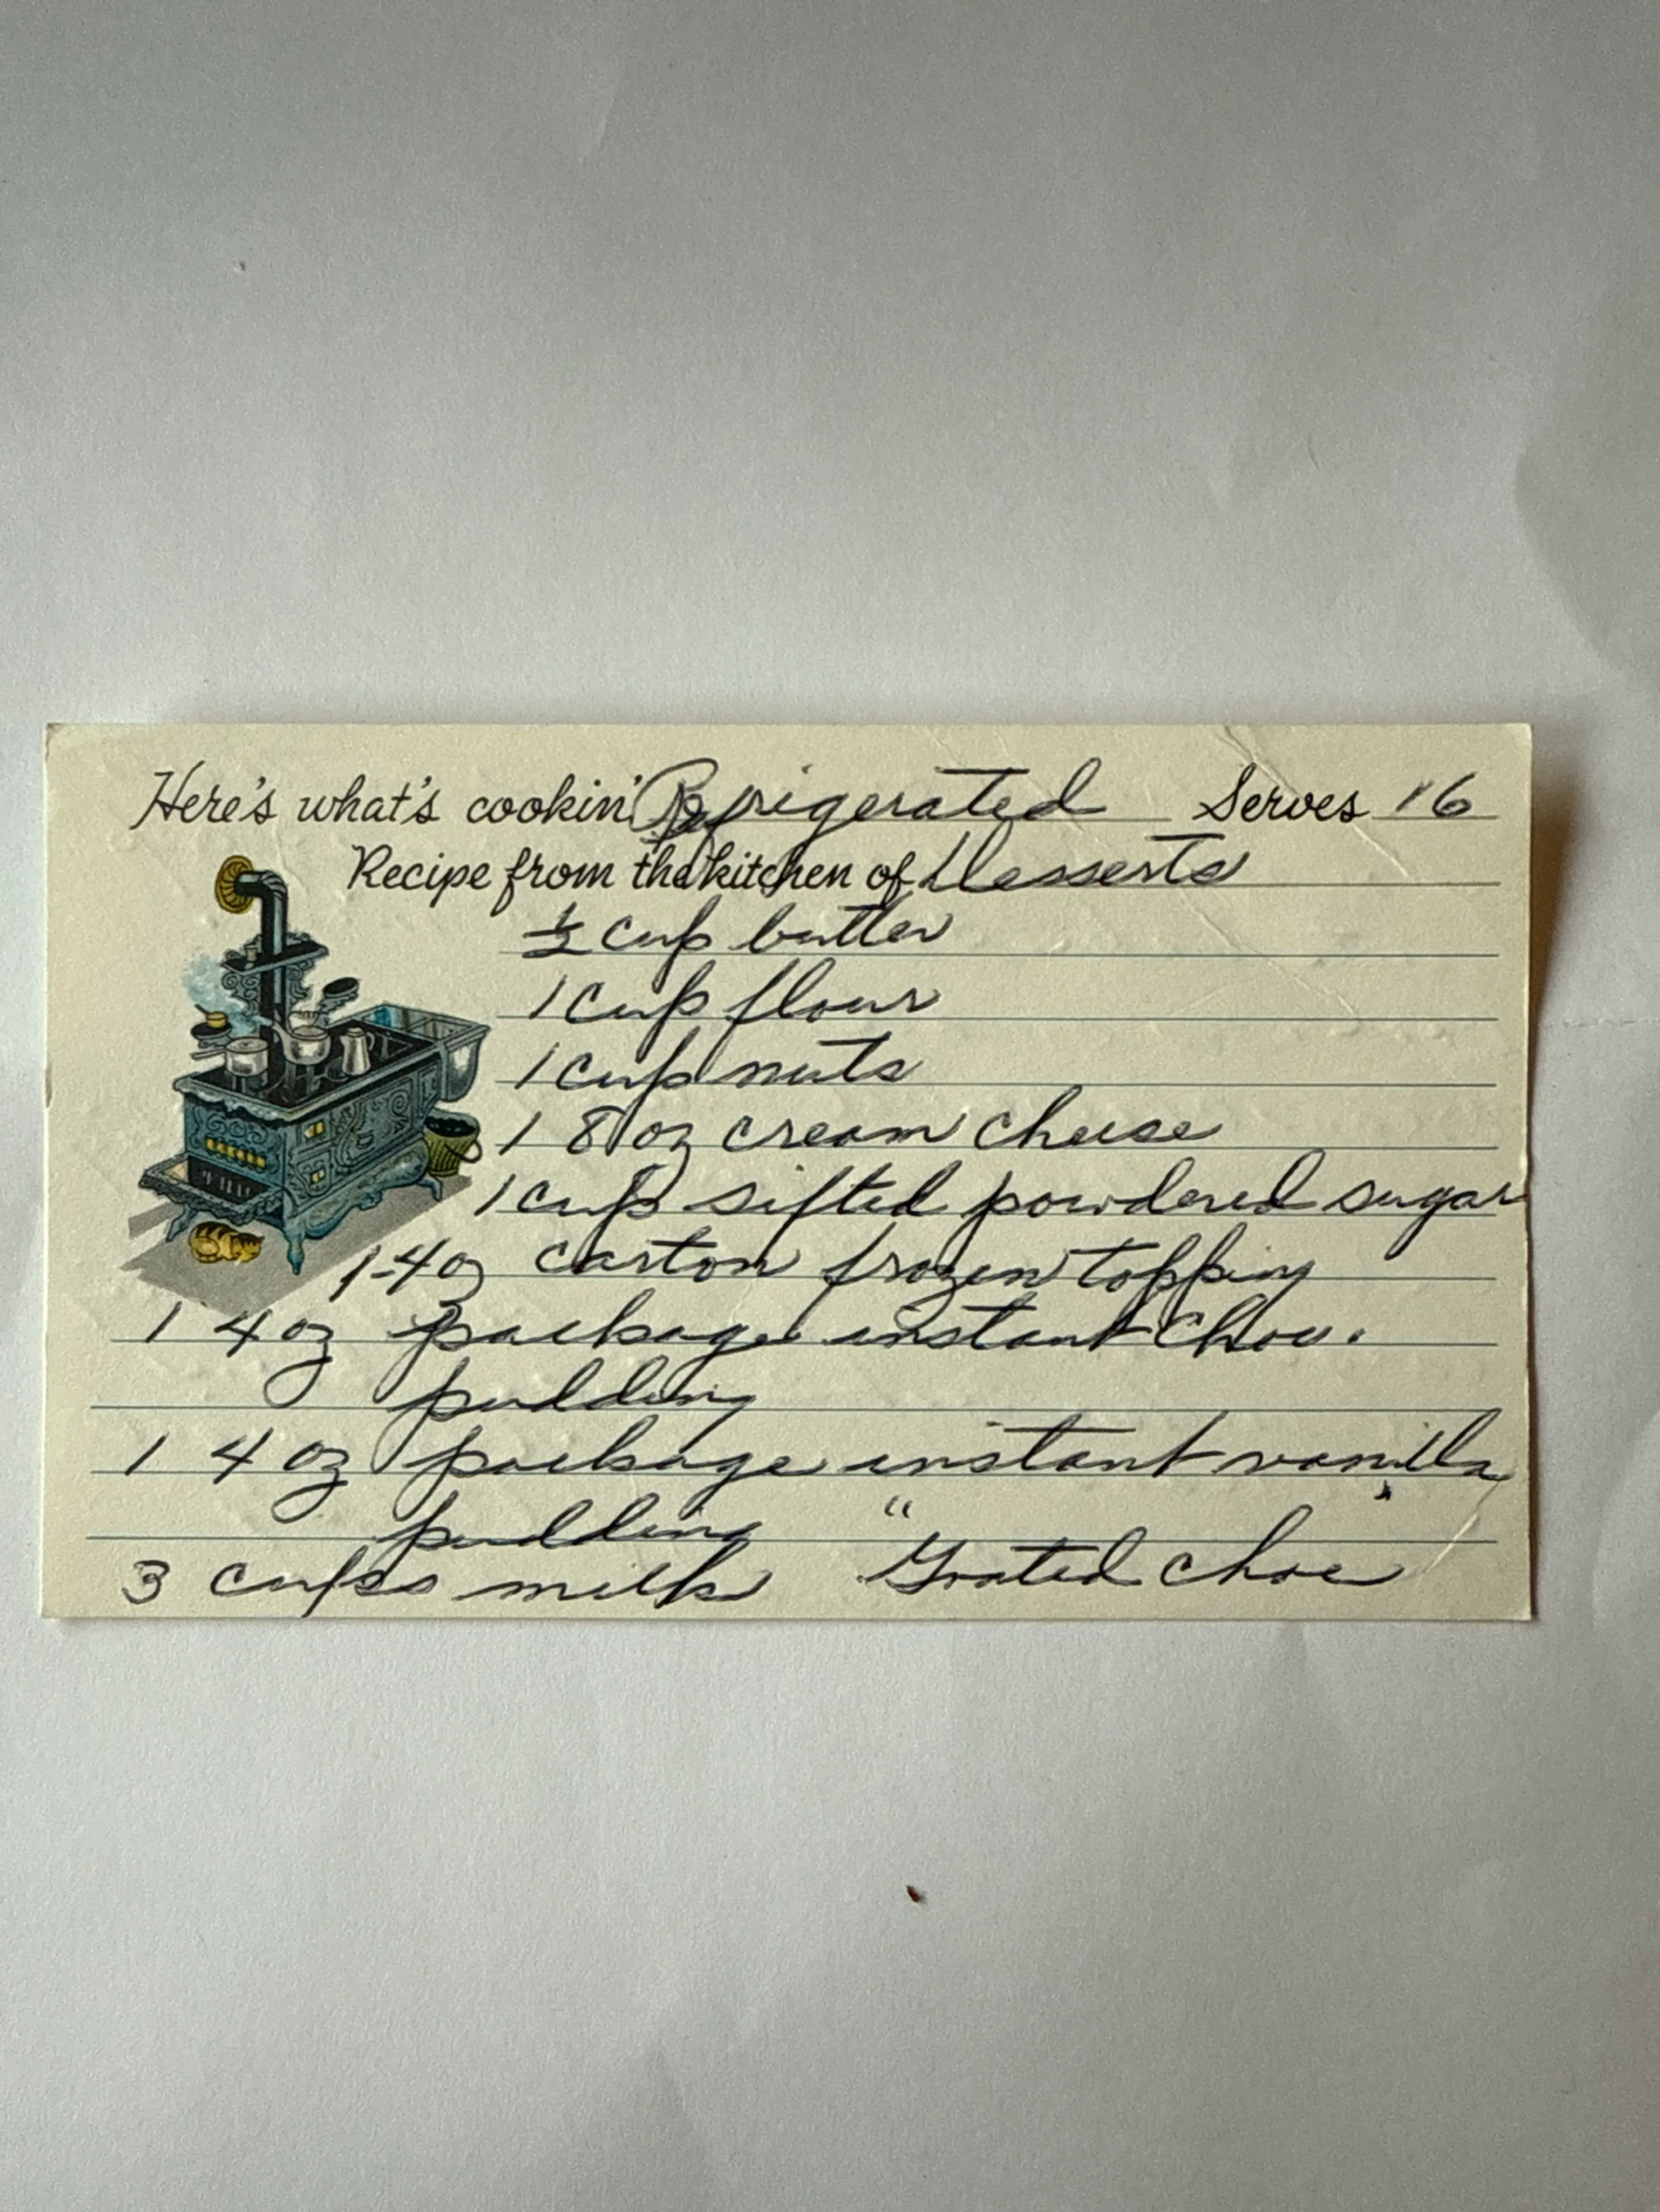 Here's what's cookin' Refrigerated Serves 16
Recipe from the kitchen of Desserts
½ cup butter
1 cup flour
1 cup nuts
1 8 oz cream cheese
1 cup sifted powdered sugar
1-4 oz carton frozen topping
1 4 oz package instant choc.
pudding
1 4 oz package instant vanilla
pudding "
3 cups milk Grated choc